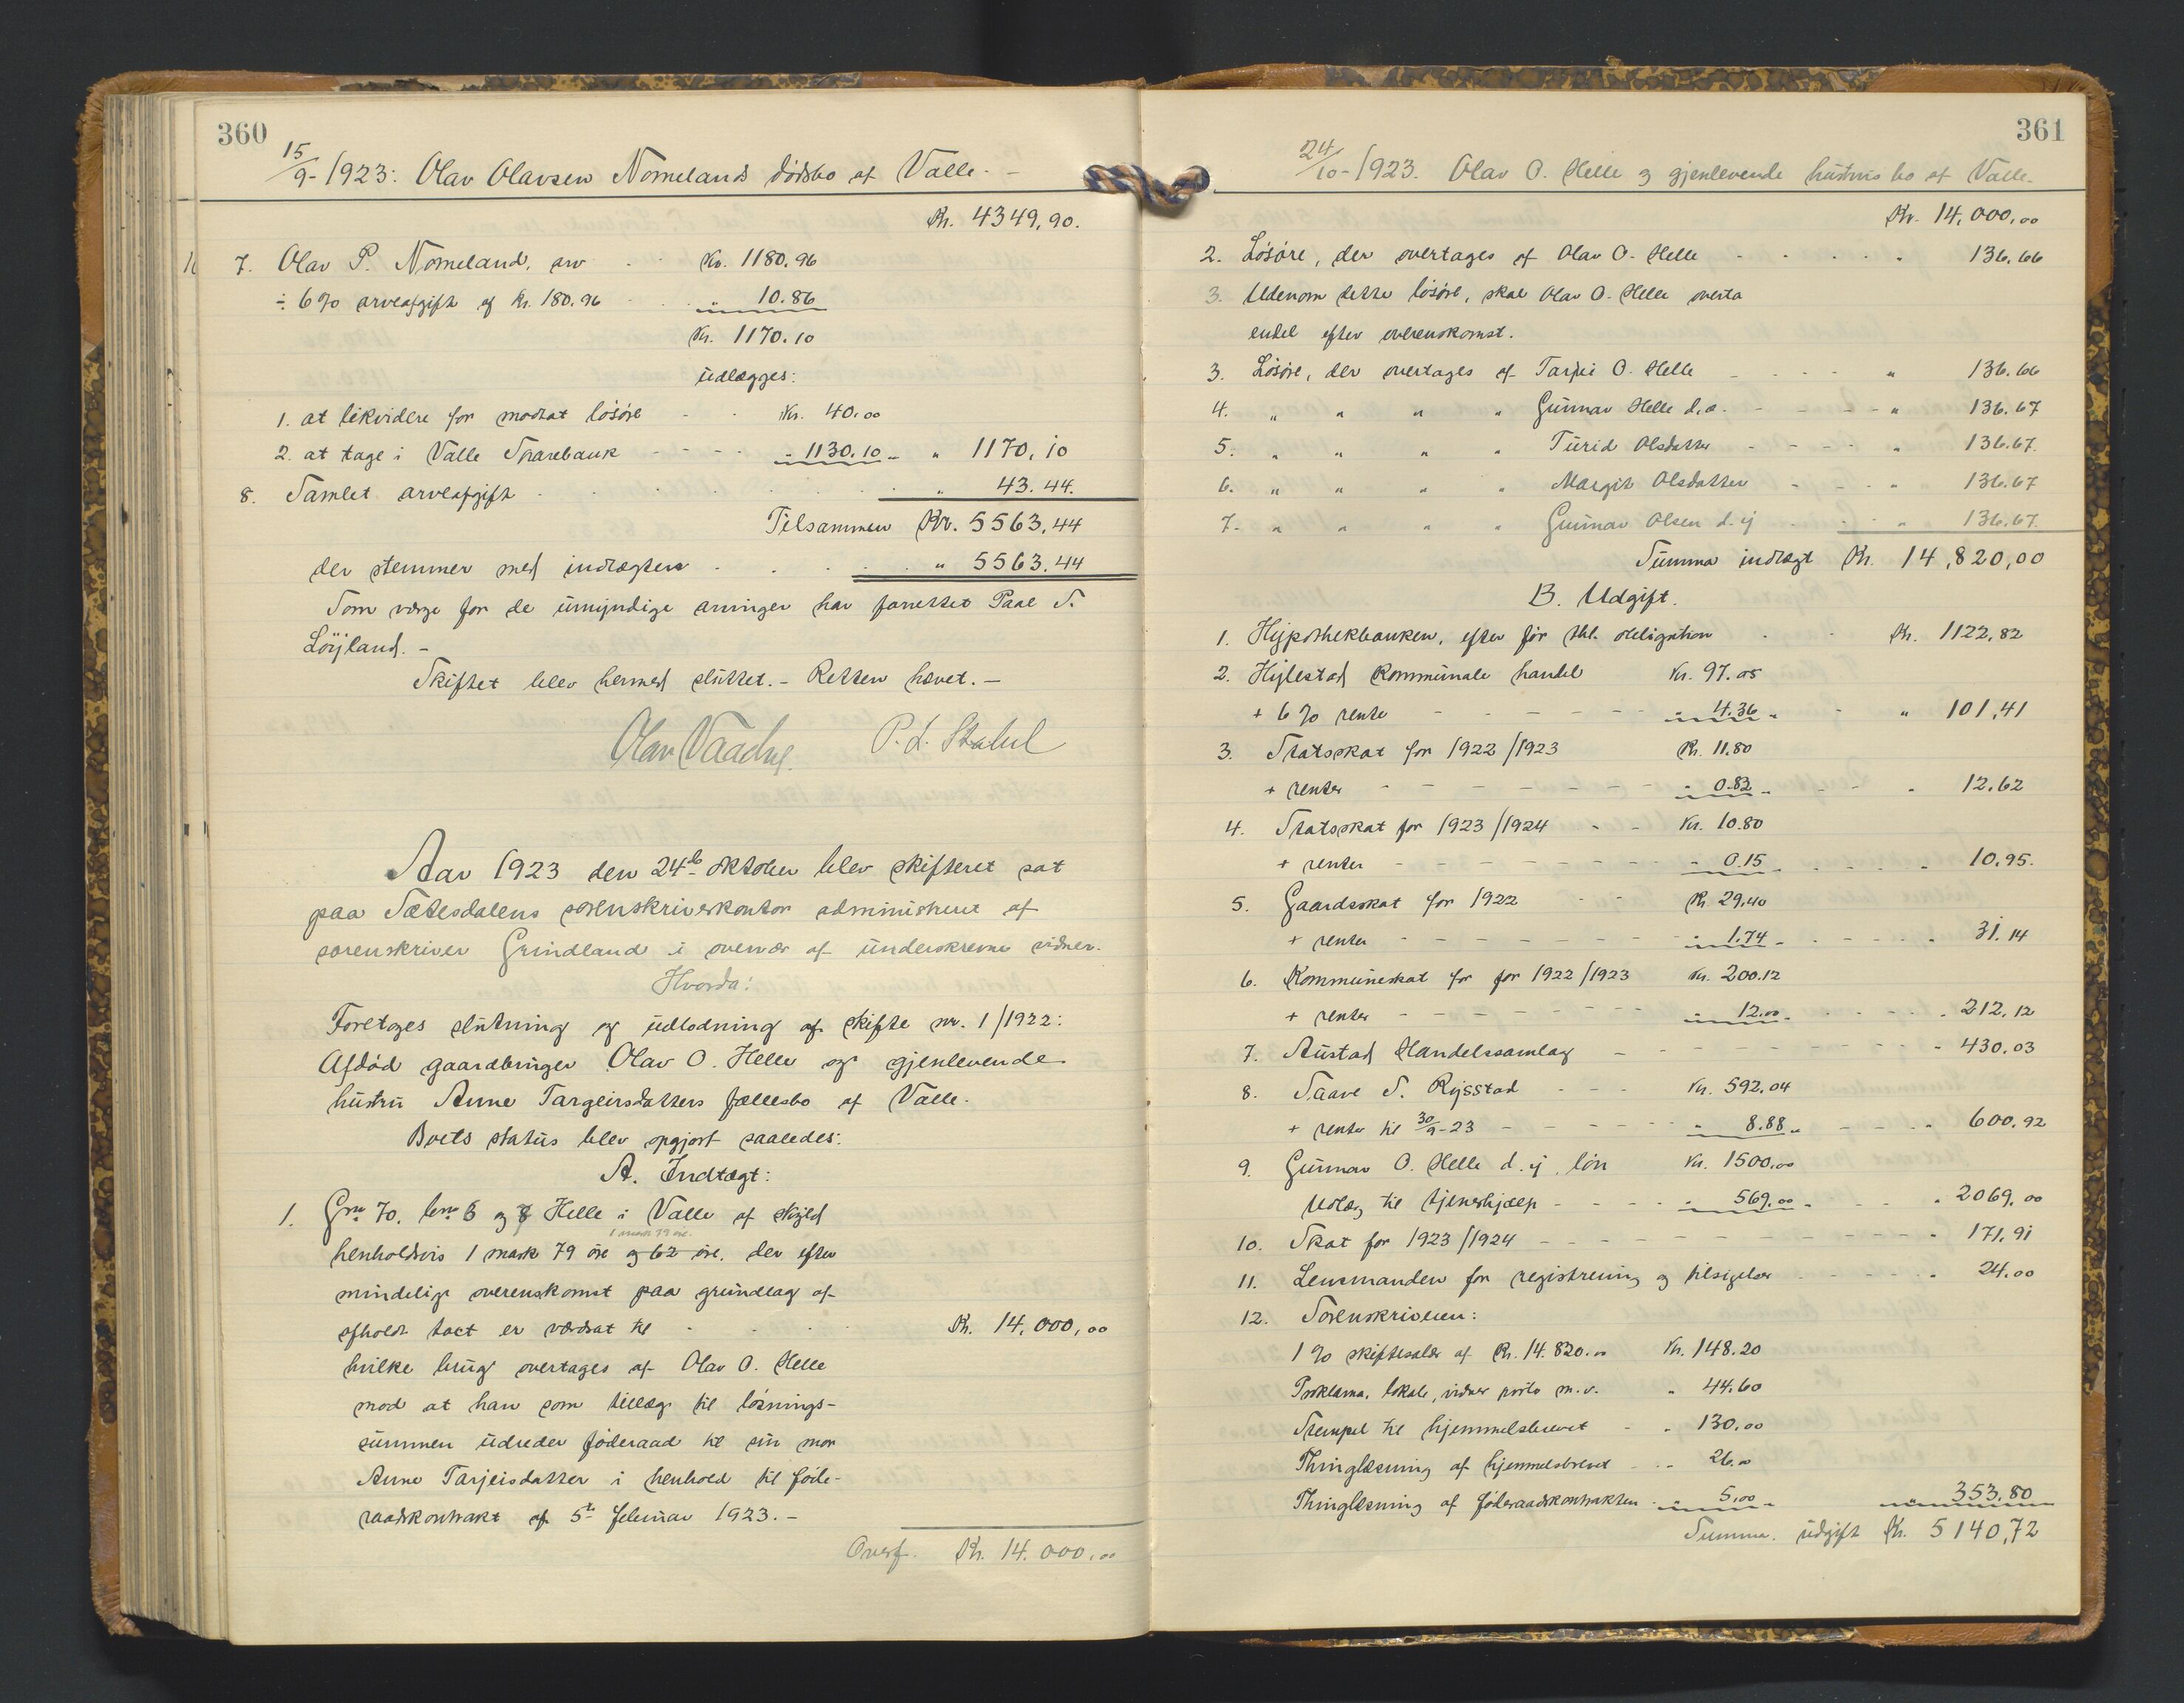 360
15/9-1923: Olav Olavsen Nomelands dödsbo af Valle. -
Kr. 4349,90.
7. Olav P. Nomeland, arv - - Kr. 1180.96
÷ 6% arveafgift af Kr. 180.96 - - " 10.86
Kr. 1170.10
udlægges:
1. at likvidere for modtat lösöre - - Kr. 40.00
2. at tage i Valle Sparebank - - - - " 1130.10 - " 1170,10
8. Samlet arveafgift - - - - - " 43.44.
Tilsammen Kr. 5563,44
der stemmer med indtægten - - - - " 5563,44
Som verge for de umyndige arvinger har forrettet Paal S.
Löyland. -
Skiftet blev hermed sluttet. - Retten hævet. -
Olav Vaadne. P. L. Stahl
Aar 1923 den 24de oktober blev skifteret sat
paa Sætesdalens sorenskriverkontor administreret af
sorenskriver Grindland i overvær af underskrevne vidner.
Hvorda:
Foretoges slutning og udlodning af skifte nr. 1/1922:
Afdöd gaardbruger Olav O. Helle og gjenlevende
hustru Anne Targeirsdatters fællesbo af Valle.
Boets status blev opgjort saaledes:
A. Indtægt:
1. Gnr 70. bnr 6 og 8 Helle i Valle af skyld
1 mark 79 øre.
henholdsvis 1 mark 79 öre og 62 öre, der efter
mindelig overenskomst paa grundlag af
afholdt taxt er værdsat til - - - - Kr. 14.000,00
hvilke brug overtages af Olav O. Helle
mod at han som tillæg til lösnings-
summen udreder föderaad til sin mor
Anne Tarjeisdatter i henhold til föde-
raadskontrakt af 5te februar 1923. -
Overf. Kr. 14.000,00
361
24/10-1923. Olav O. Helle og gjenlevende hustrus bo af Valle.
Kr. 14.000,00
2. Lösöre, der overtages af Olav O. Helle - - - - - " 136.66
3. Udenom dette lösöre, skal Olav O. Helle overta
endel efter overenskomst.
3. Lösöre, der overtages af Tarjei O. Helle - - - - " 136.66
4. " " " " Gunnar Helle d.e. - - - - " 136.67
5. " " " " Turid Olsdatter - - - - " 136.67.
6. " " " " Margit Olsdatter - - - " 136.67
7. " " " " Gunnar Olsen d.y - - - " 136.67.
Summa indtægt Kr. 14,820,00
B. Udgift.
1. Hypothekbanken, efter för thl. obligation - - Kr. 1122,82
2. Hylestad kommunale handel Kr. 97.05
+ 6% rente - - - - - - " 4.36 - - " 101,41
3. Statsskat for 1922/1923 Kr. 11.80
+ renter - - - - - - - " 0.82 - - - " 12.62
4. Statsskat for 1923/1924 - - Kr. 10.80
+ renter - - - - - - - " 0.15 - - - - " 10.95.
5. Gaardsskat for 1922 - - Kr. 29.40
+ renter - - - - - - - " 1.74 - - - - - " 31.14
6. Kommuneskat for for 1922/1923 Kr. 200.12
+ renter - - - - - - - " 12.00 - - - - - " 212,12
7. Austad Handelssamlag - - - - - - - - - - " 430.03
8. Taave S. Rysstad - - - Kr. 592.04
+ renter til 30/9-23 - - - - - " 8.88 " - - - - " 600.92
9. Gunnar O. Helle d.y. lön Kr. 1500,00
Utlæg til tjenerhjælp - - - - " 569.00 - - - " 2069.00
10. Skat for 1923/1924 - - - - - - - - - - - - " 171.91
11. Lensmanden for registrering og tilsigelser - - - - - " 24.00
12. Sorenskriveren:
1% skiftesalær af Kr. 14.820.00 Kr. 148.20
Proklama, lokale, vidner porto m.v. " 44.60
Stempel til hjemmelsbrevet - - " 130.00
Thinglæsning af hjemmelsbrevet - - - 26.00
Thinglæsning af föderaadskontrakten - " 5.00 - " 353.80
Summa. udgift Kr. 5140,72